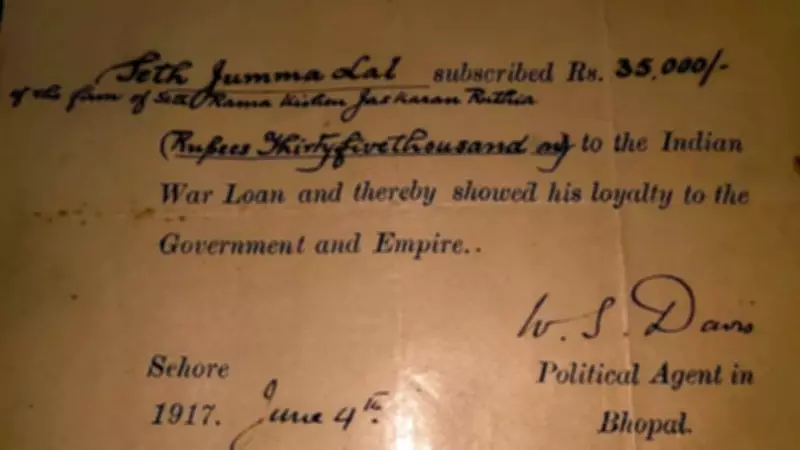 Seth Jumma Lal subscribed Rs. 35,000/-
of the firm of Seth Rama Kishen Jaskaran Ruthia
(Rupees Thirtyfivethousand only) to the Indian
War Loan and thereby showed his loyalty to the
Government and Empire..
W. S. Davis
Sehore Political Agent in
1917. June 4th. Bhopal.